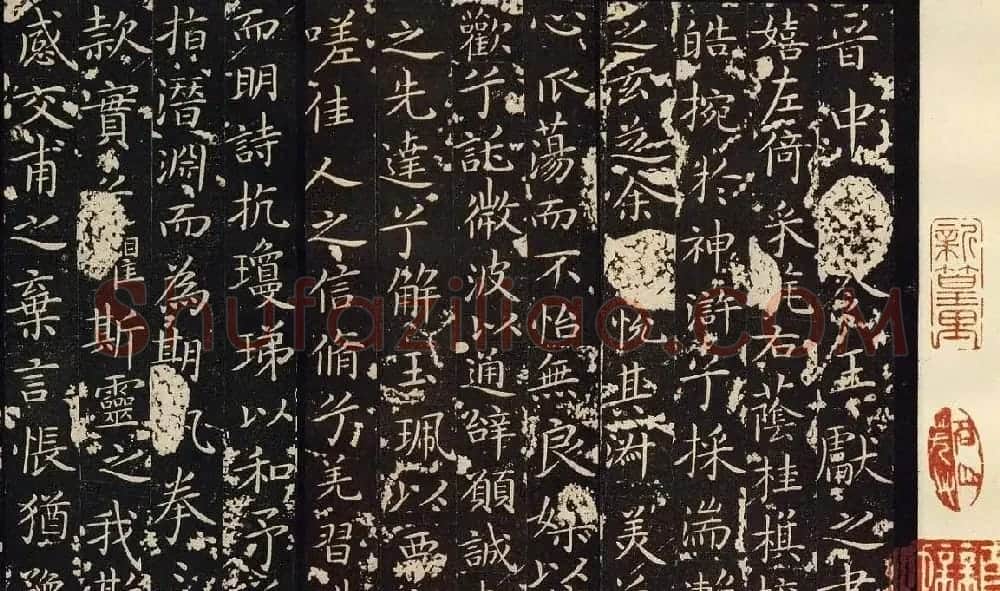 晉中令王獻之書
嬉左倚采旄右蔭桂棋
皓捥於神滸兮採湍瀨
之玄芝余悅其淑美
心蕩而不怡無良媒以
歡兮託微波以通辭願誠
之先達兮解玉珮以要
嗟佳人之信脩兮羌習
而明詩抗瓊珶以和予
指潛淵而為期拳
款實懼斯靈之我欺
感交甫之棄言悵猶豫
Shufaziliao.COM